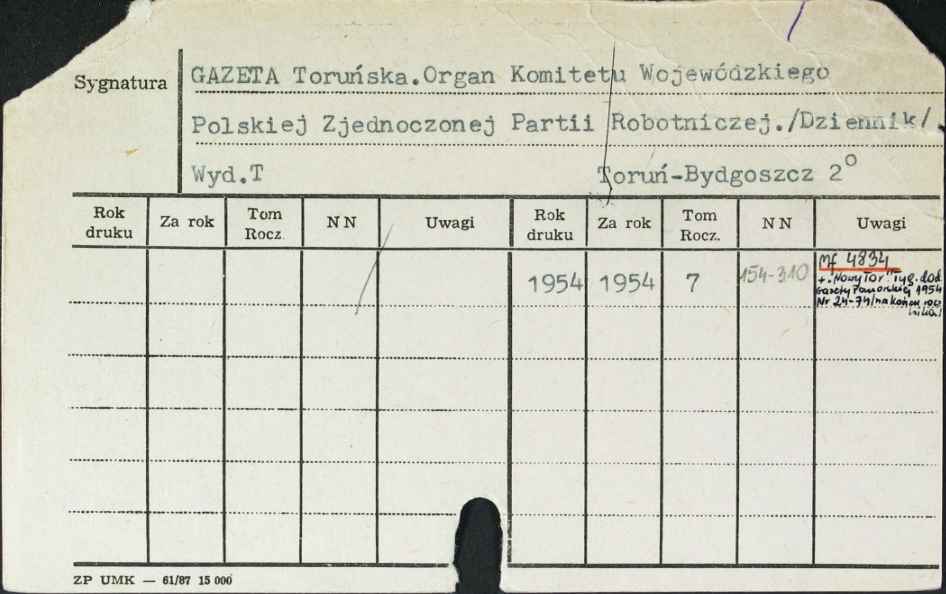 Sygnatura
GAZETA Toruńska.Organ Komitetu Wojewódzkiego
Polskiej Zjednoczonej Partii Robotniczej./Dziennik/.
Wyd.T Toruń-Bydgoszcz 2°
Rok druku Za rok Tom Rocz. NN Uwagi Rok druku Za rok Tom Rocz. NN Uwagi
1954 1954 7 154-310 Mf 4834
+."Nowy Tor" tyg. dod.
Gazety Pomorskiej 1954
Nr 24-74/na końcu rocz
nika/
ZP UMK — 61/87 15 000